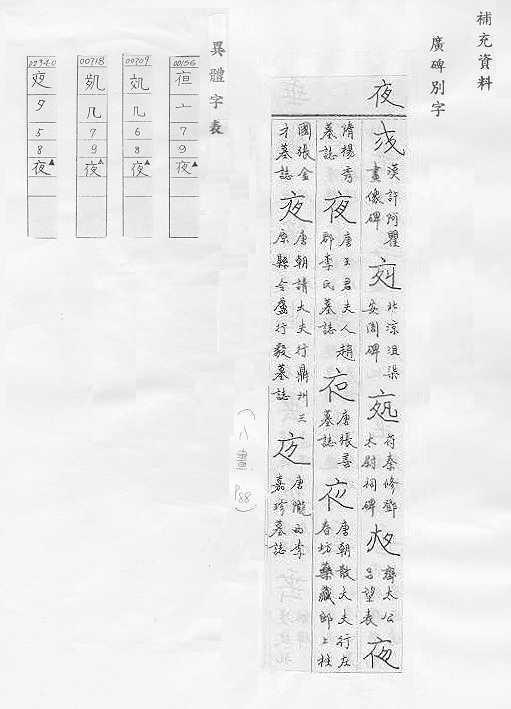 補充資料
廣碑別字
夜
漢許阿瞿畫像碑
北涼沮渠安周碑
苻秦修鄧太尉祠碑
齊太公呂望表
夜
隋楊秀墓誌
夜
唐王君夫人趙郡李氏墓誌
唐張善墓誌
唐朝散大夫行左春坊藥藏郎上柱
國張金才墓誌
夜
唐朝請大夫行鼎州三原縣令盧行毅墓誌
唐隴西李嘉珍墓誌
(八畫 P88)
異體字表
00156
亠
7
9
夜▲
00709
几
6
8
夜▲
00718
几
7
9
夜▲
02940
夕
5
8
夜▲